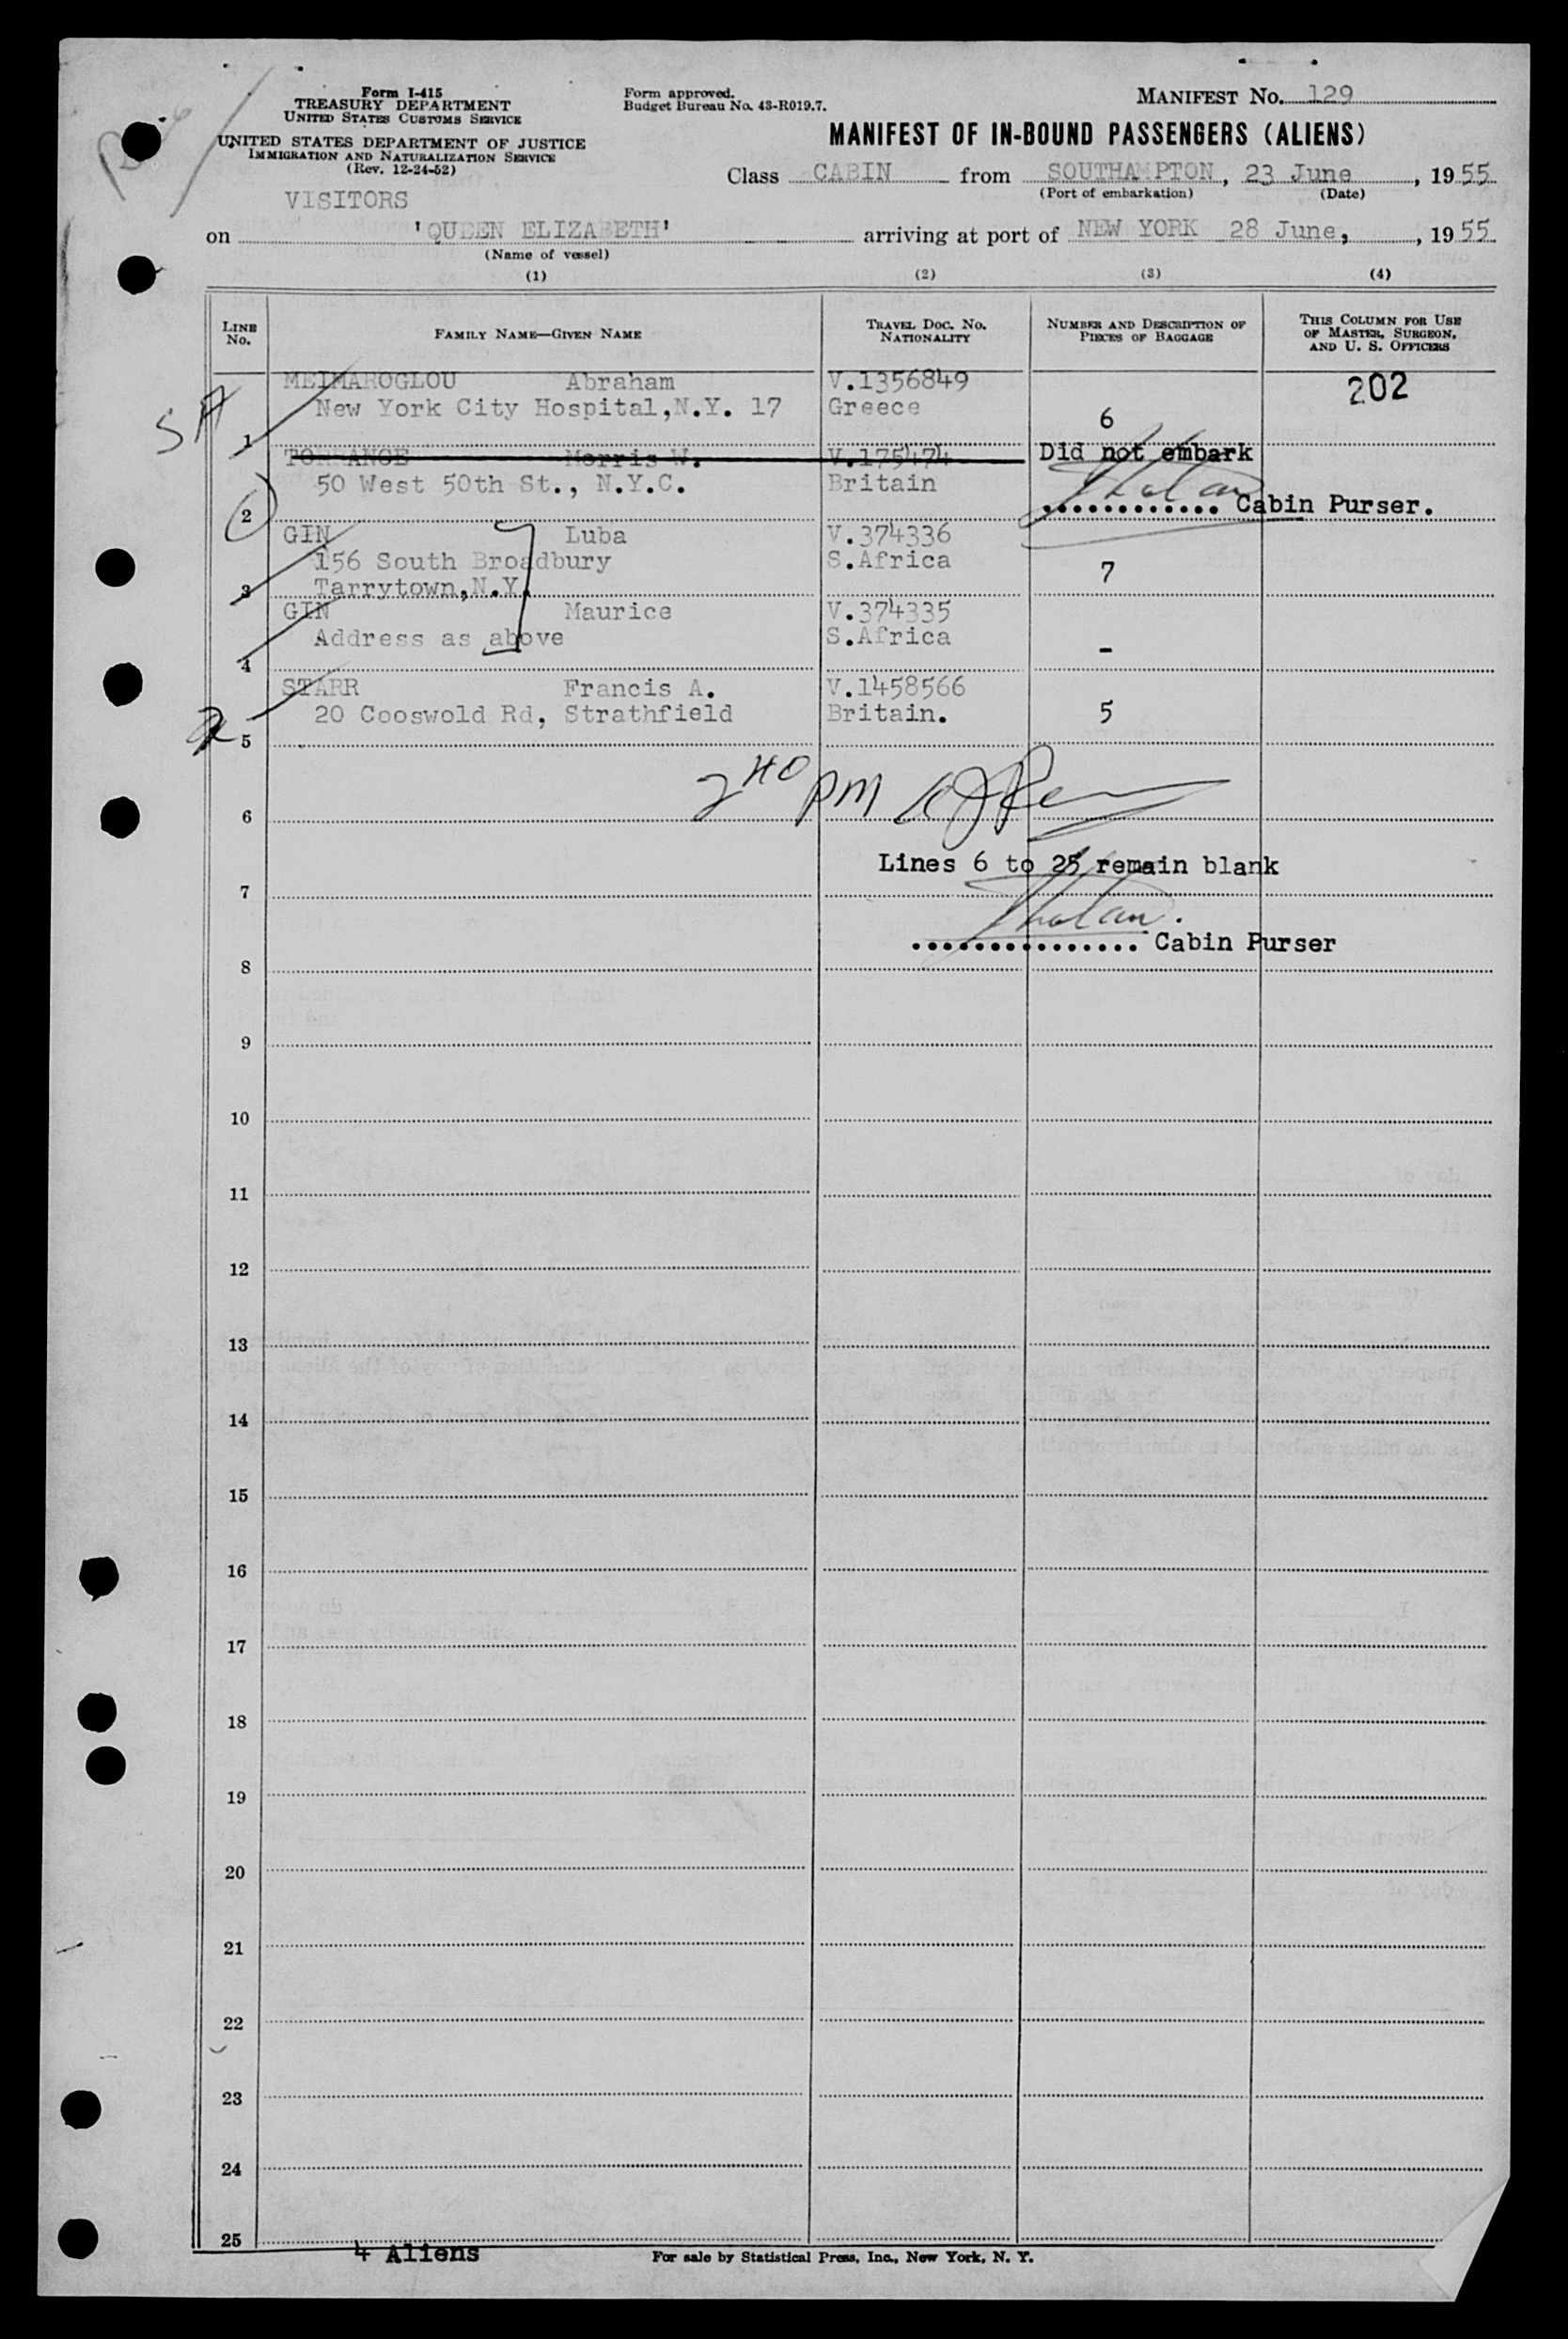 Form I-415
TREASURY DEPARTMENT
UNITED STATES CUSTOMS SERVICE
UNITED STATES DEPARTMENT OF JUSTICE
IMMIGRATION AND NATURALIZATION SERVICE
(Rev. 12-24-52)
Form approved.
Budget Bureau No. 43-R019.7.
MANIFEST No. 129
MANIFEST OF IN-BOUND PASSENGERS (ALIENS)
Class CABIN from SOUTHAMPTON, 23 June, 1955
(Port of embarkation) (Date)
VISITORS
on 'QUEEN ELIZABETH' arriving at port of NEW YORK 28 June, , 1955
(Name of vessel)
(1) (2) (3) (4)
LINE No. FAMILY NAME—GIVEN NAME TRAVEL DOC. No. NATIONALITY NUMBER AND DESCRIPTION OF PIECES OF BAGGAGE THIS COLUMN FOR USE OF MASTER, SURGEON, AND U. S. OFFICERS
MEIMAROGLOU Abraham V.1356849 202
New York City Hospital,N.Y. 17 Greece 6
SA
1
TORRANCE Morris W. V.175474 Did not embark
50 West 50th St., N.Y.C. Britain
............ Cabin Purser.
2
GIN Luba V.374336
156 South Broadbury S.Africa 7
3 Tarrytown,N.Y.
GIN Maurice V.374335
Address as above S.Africa -
4
STARR Francis A. V.1458566
20 Cooswold Rd, Strathfield Britain. 5
5
2 40 PM
6
Lines 6 to 25 remain blank
7
............... Cabin Purser
8
9
10
11
12
13
14
15
16
17
18
19
20
21
22
23
24
25
4 Aliens
For sale by Statistical Press, Inc., New York, N. Y.